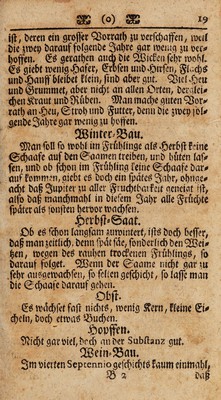 (o) 19
ist, deren ein grosser Vorrath zu verschaffen, weil
die zwey darauf folgende Jahre gar wenig zu ver-
hoffen. Es gerathen auch die Wicken sehr wohl.
Es giebt wenig Hafer, Erbsen und Hirsen, Flachs
und Hanff bleibet klein, sind aber gut. Viel Heu
und Grummet, aber nicht an allen Orten, derglei-
chen Kraut und Rüben. Man mache guten Vor-
rath an Heu, Stroh und Futter, denn die zwey fol-
gende Jahre gar wenig zu hoffen.
Winter-Bau.
Man soll so wohl im Frühlinge als Herbst keine
Schaafe auf den Saamen treiben, und hüten las-
sen, und ob schon im Frühling keine Schaafe dar-
auf kommen, giebt es doch ein spätes Jahr, ohnge-
acht daß Jupiter zu aller Fruchtbarkeit geneigt ist,
also daß manchmahl in diesem Jahr alle Früchte
später als sonsten hervor wachsen.
Herbst-Saat.
Ob es schon langsam zuwintert, ists doch besser,
daß man zeitlich, denn spät säe, sonderlich den Wei-
tzen, wegen des rauhen trockenen Frühlings, so
darauf folget. Wenn der Saame nicht gar zu
sehr ausgewachsen, so selten geschicht, so lasse man
die Schaafe darauf gehen.
Obst.
Es wächset fast nichts, wenig Kern, kleine Ei-
cheln, doch etwas Buchen.
Hopffen.
Nicht gar viel, doch an der Substanz gut.
Wein-Bau.
Im vierten Septennio geschichts kaum einmahl,
B 2 daß